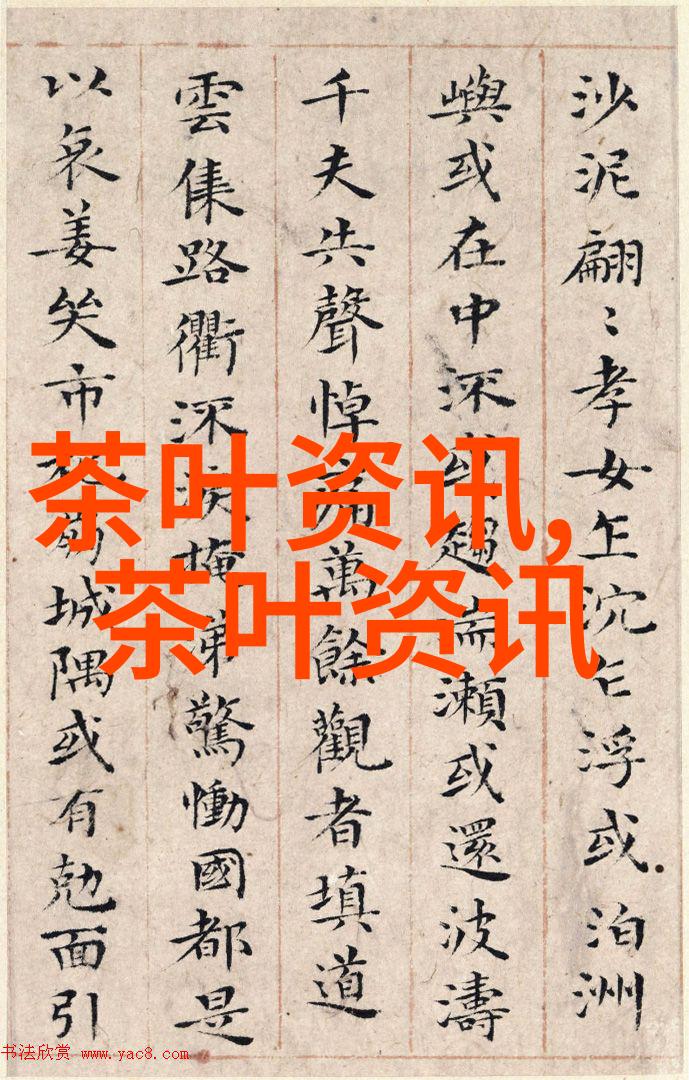 沙泥翩〻孝女乍沉乍浮或泊洲
嶼或在中流或趨湍瀨或還波濤
千夫共聲悼痛萬餘觀者填道
雲集路衢流淚掩涕驚慟國都是
以哀姜哭市杞崩城隅或有尅面引
茶叶资讯,
茶叶资讯
书法欣赏 www.yac8.com